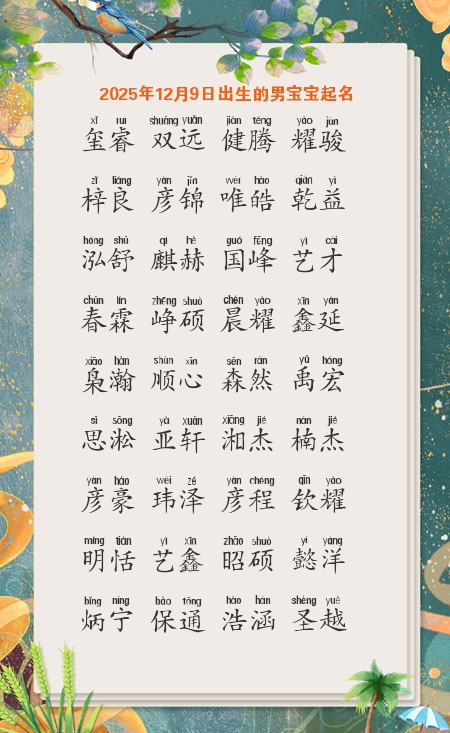 2025年12月9日出生的男宝宝起名
xǐ ruì shuāng yuǎn jiàn téng yào jùn
玺睿 双远 健腾 耀骏
zǐ liáng yàn jǐn wéi hào qián yì
梓良 彦锦 唯皓 乾益
hóng shū qí hè guó fēng yì cái
泓舒 麒赫 国峰 艺才
chūn lín zhēng shuò chén yào xīn yán
春霖 峥硕 晨耀 鑫延
xiāo hàn shùn xīn sēn rán yǔ hóng
枭瀚 顺心 森然 禹宏
sī sōng yà xuān xiāng jié nán jié
思淞 亚轩 湘杰 楠杰
yàn háo wěi zé yàn chéng qīn yào
彦豪 玮泽 彦程 钦耀
míng tián yì xīn zhāo shuò yì yáng
明恬 艺鑫 昭硕 懿洋
bǐng níng bǎo tōng hào hán shèng yuè
炳宁 保通 浩涵 圣越